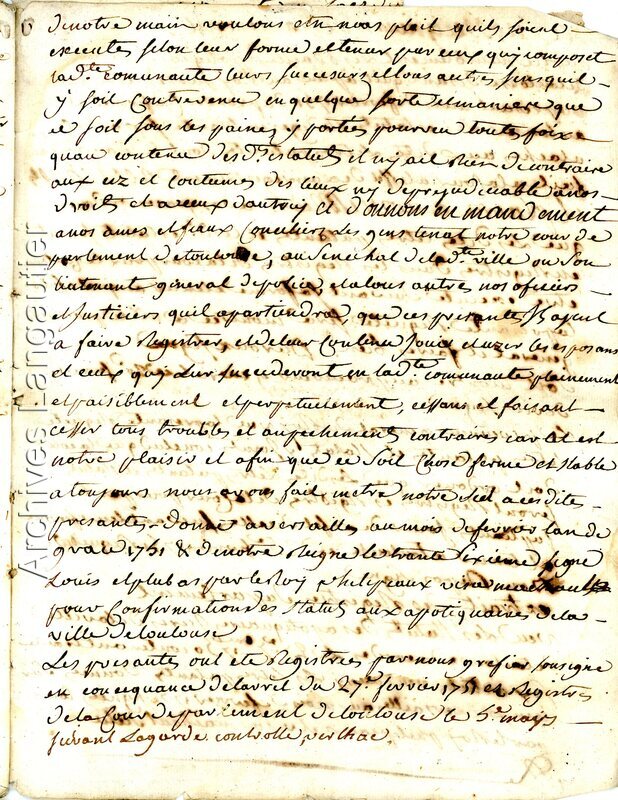 de notre main voulons et nous plait quils soient
executés selon leur forme et teneur par ceux quy composet
lad.te comunauté leurs succesurs et tous autres sens quil
y soit contrevenu en quelque sorte et maniere que
ce soit sous les paines y portées pourveu toutes foix
quau contenue desd.s statuts il ny ait rien de contraire
aux uz et coutumes des lieux ny de prejudiciable a nos
droits et a ceux dautruy et donnons en mandement
a nos ames et feaux conseiliers les gens tenat notre cour de
parlement de toulouse, au senechal de lad.te ville ou son
lieutenant general de police, et a tous autres nos oficiers
et justiciers quil apartiendra, que ces presantes ils ayent
a faire registrer, et de leur contenu jouir et uzer les exposans
et ceux quy leur succederont en lad.te comunauté plainement
et paisiblement et perpetuelement, cessans et faisant
cesser tous troubles et anpechements contraires car tel est
notre plaisir et afin que ce soit chose ferme et stable
a toujours nous avons fait metre notre scel a ces dites
presantes. donné a versailles au mois de fevrier lan de
grace 1751 & de notre reigne le trante sixieme signé
Louis et plus bas par le roy phelipeaux visa machault
pour confirmation des statuts aux apotiquaires de la
ville de toulouse
Les presantes ont eté registrées par nous grefier sousigné
en concequance de larret du 27.e fevrier 1751 es registres
de la cour de parlement de toulouse le 5.e mars
suivant Lagarde controllé, verlhac.
Archives Langautier